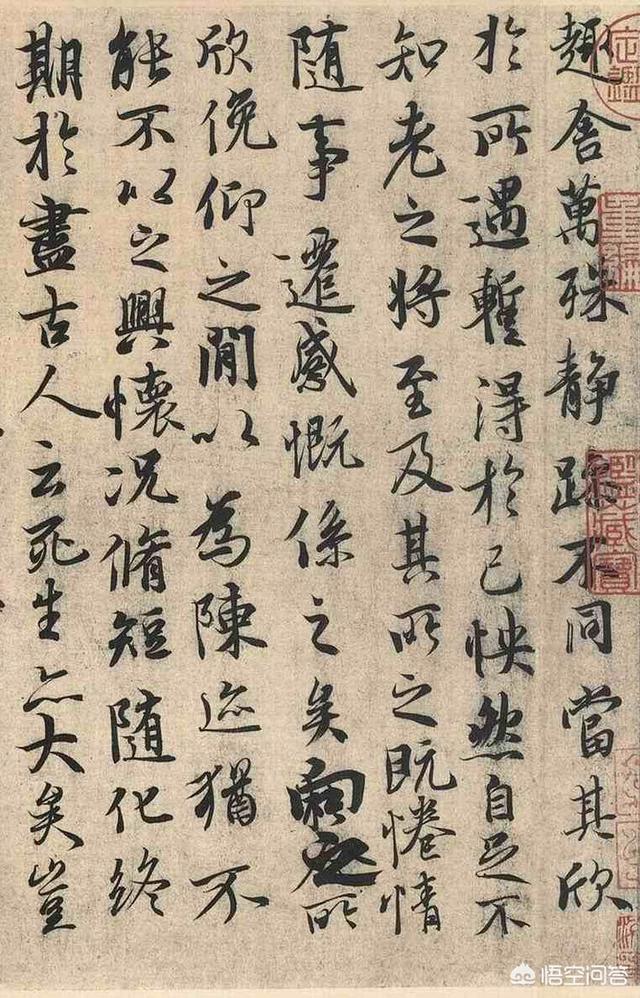 趣舍萬殊静躁不同當其欣
於所遇蹔得於己怏然自足不
知老之將至及其所之既惓情
隨事遷感慨係之矣向之所
欣俛仰之閒以為陳迹猶不
能不以之興懷況脩短隨化終
期於盡古人云死生亦大矣豈
悟空问答